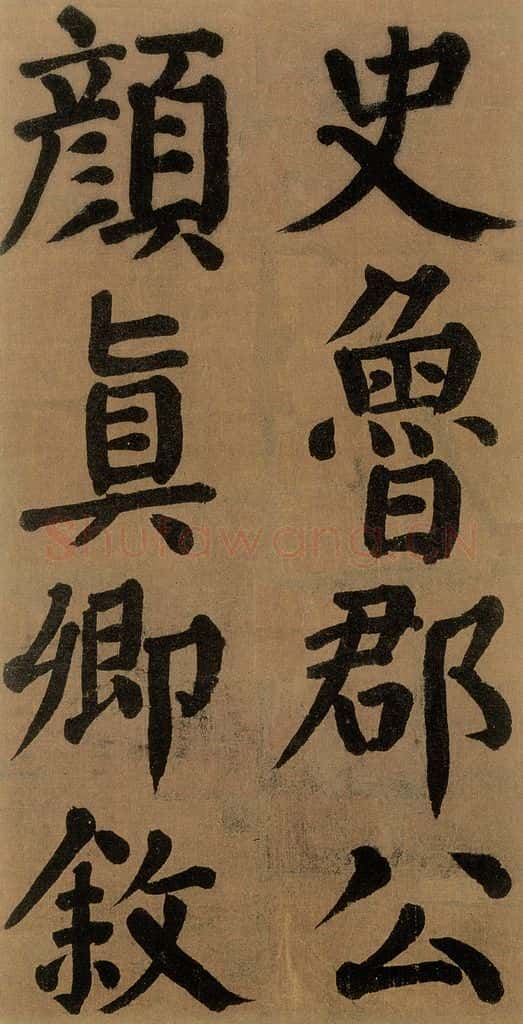 史魯郡公
顏真卿敘
Shufawang.CN